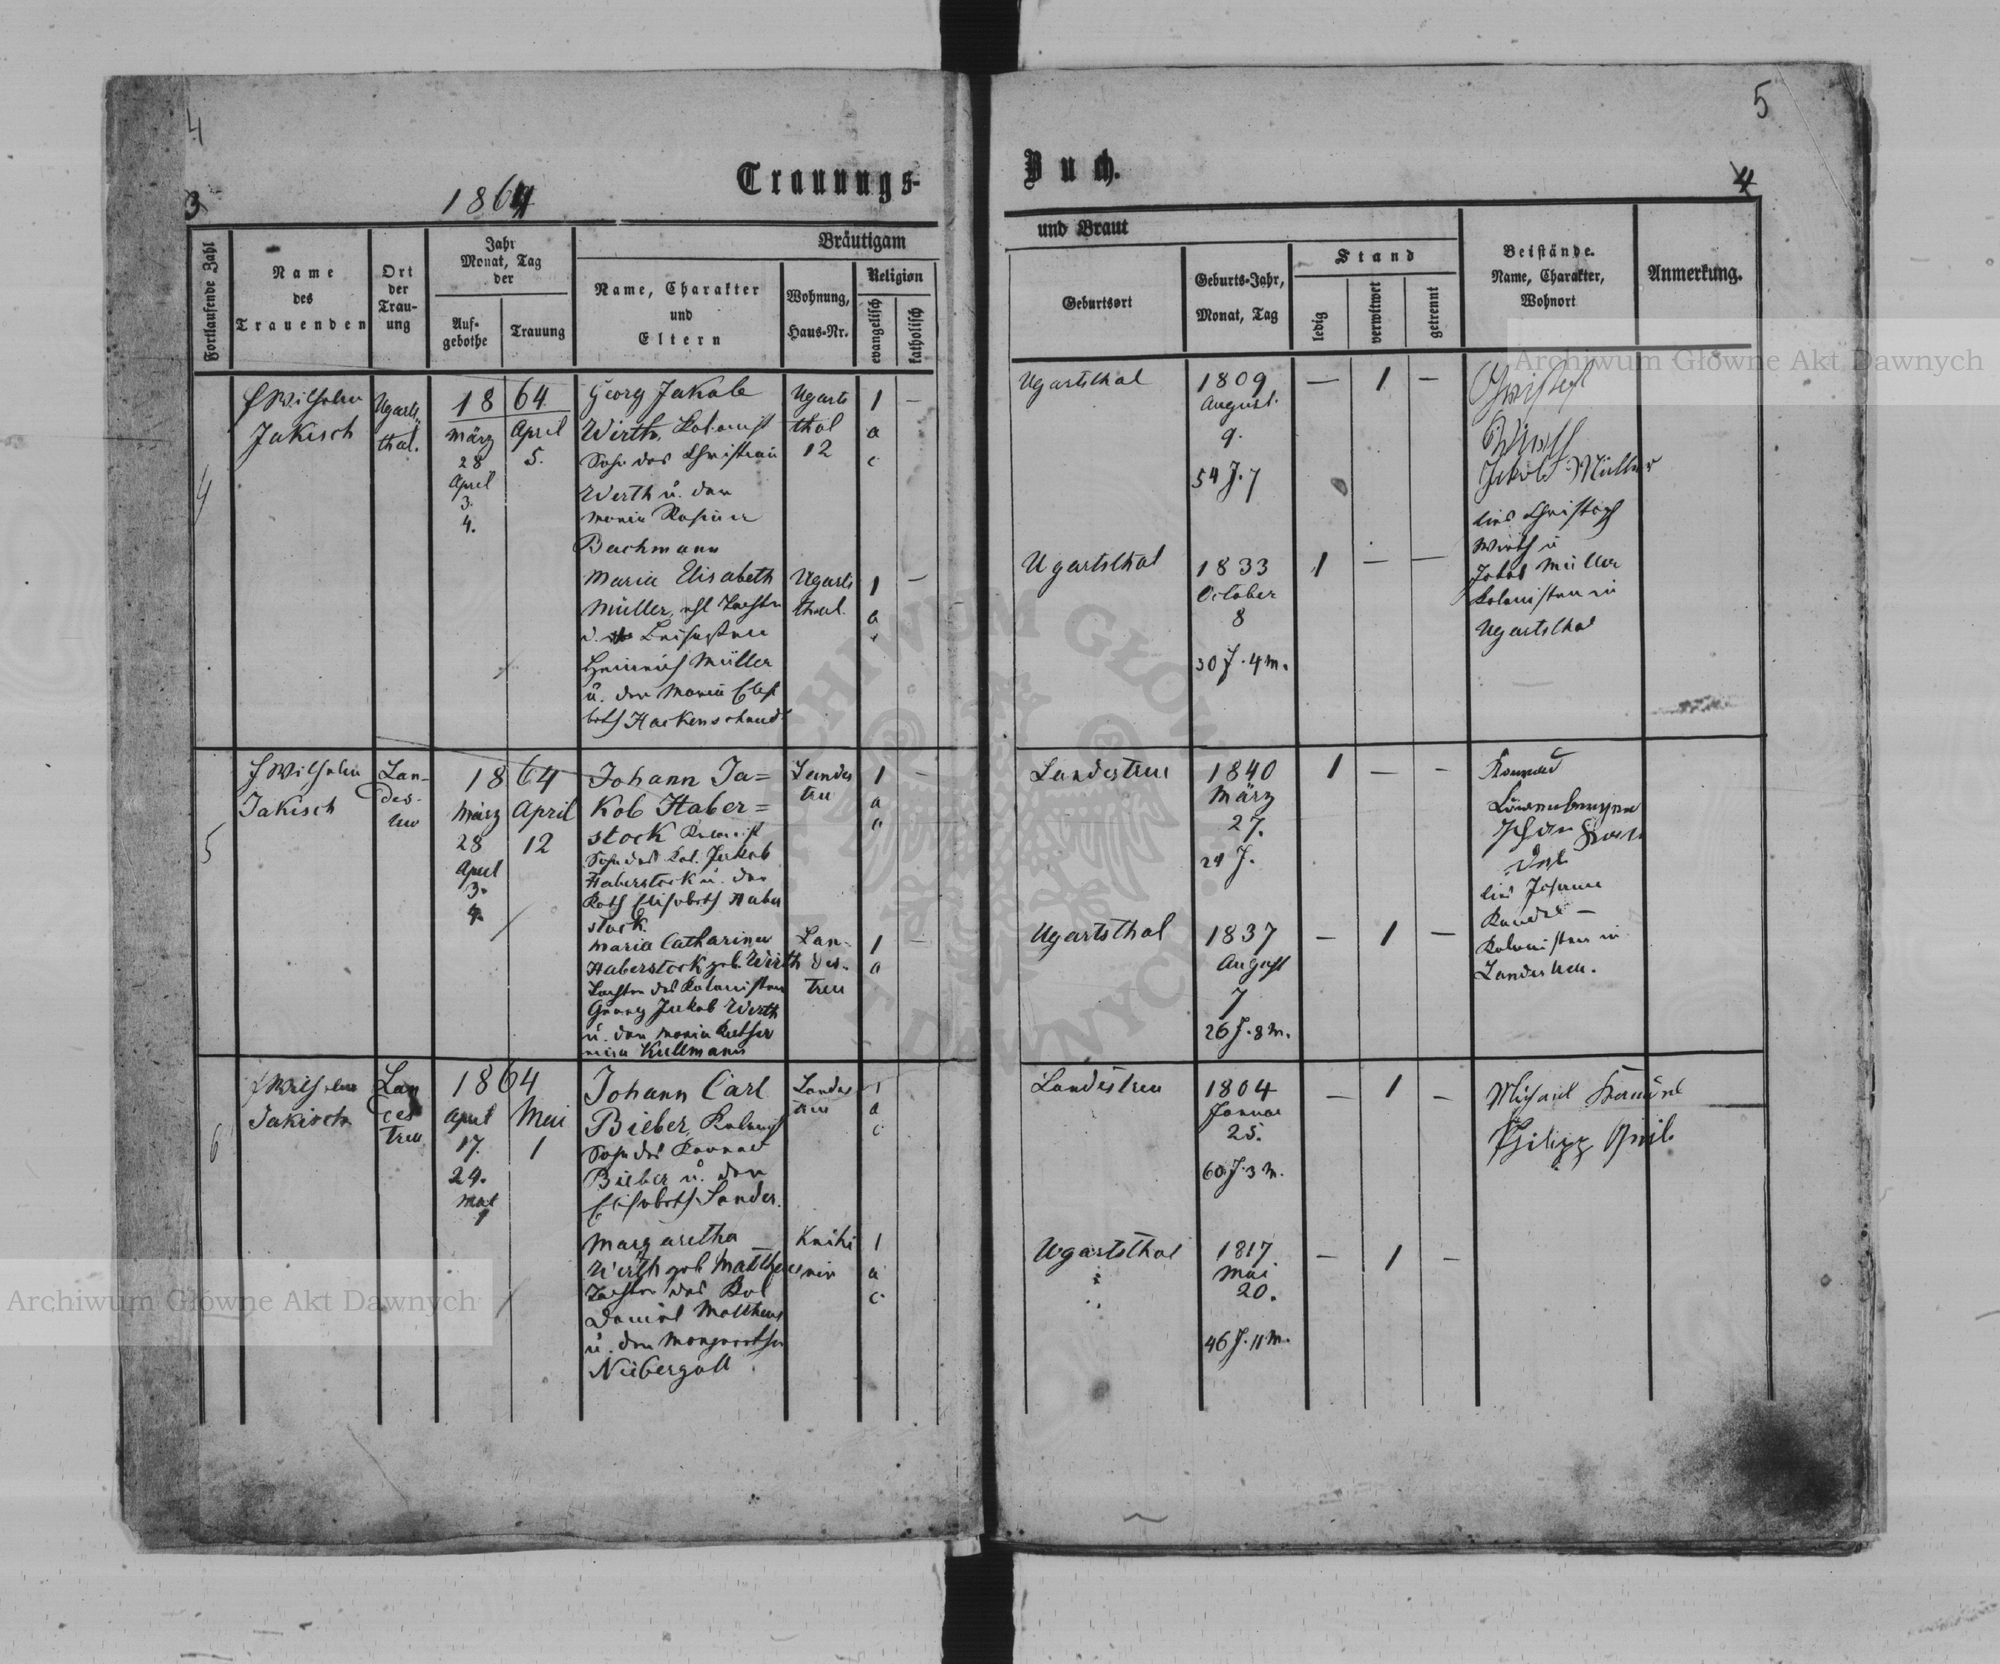 4
5
3
1864
Trauungs-
Buch.
4
Fortlaufende Zahl
Name
des
Trauenden
Ort
der
Trau-
ung
Jahr
Monat, Tag
der
Auf-
gebothe
Trauung
Bräutigam
Name, Charakter
und
Eltern
Wohnung,
Haus-Nr.
Religion
evangelisch
katholisch
und Braut
Geburtsort
Geburts-Jahr,
Monat, Tag
Stand
ledig
verwitwet
getrennt
Beistände.
Name, Charakter,
Wohnort
Anmerkung.
4
Wilhelm
Jakisch
Ugarts
thal.
18 64
März
28
April
3.
4.
April
5.
Georg Jakob
Wirth, Kolonist
Sohn des Christian
Wirth u. der
Maria
Bachmann
Ugarts
thal
12
1
a
c
—
Ugartsthal
1809
August.
9.
54 J. 7
—
1
—
Jakob Müller
Christoph
Wirth u
Jakob Müller
Kolonisten in
Ugartsthal
Maria Elisabeth
Müller, Tochter
Heinrich Müller
u. der Maria Elisa
beth Hackenschmidt
Ugarts
thal.
1
a
—
Ugartsthal
1833
October
8
30 J. 4 M.
1
—
—
5
Wilhelm
Jakisch
Lan-
des-
treu
18 64
März
28
April
3.
4.
April
12
Johann Ja=
kob Haber=
stock Kolonist
Sohn des Kol. Jakob
Haberstock u. der
Kath Elisabeth Haber
stock.
Landes
treu
1
a
—
Landestreu
1840
März
27.
24 J.
1
—
—
Konrad
Johann
Kolonisten in
Landestreu.
Maria Catharina
Haberstock geb. Wirth
Tochter des Kolonisten
Georg Jakob Wirth
u. der Maria Katha
rina Kullmann
Lan-
des-
treu
1
a
—
Ugartsthal
1837
August
7
26 J. 8 M.
—
1
—
6
Wilhelm
Jakisch
Lan
des
treu
1864
April
17.
24.
Mai
1
Mai
1
Johann Carl
Bieber, Kolonist
Sohn des Konrad
Bieber u. der
Elisabeth Sander.
Landes
treu
1
a
c
Landestreu
1804
Januar
25.
60 J. 3 M.
—
1
—
Michael
Philipp
Margaretha
Wirth geb. Mattheus
Tochter des Kol
Daniel Mattheus
u. der Margaretha
Niebergall
Knihi
nin
1
a
c
Ugartsthal
1817
Mai
20.
46 J. 11 M.
—
1
—
Archiwum Główne Akt Dawnych
Archiwum Główne Akt Dawnych
ARCHIWUM GŁÓWNE AKT DAWNYCH